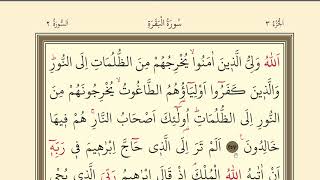 الجزء ٣ سورة البقرة السورة ٢
اَللّٰهُ وَلِيُّ الَّذٖينَ اٰمَنُواۙ يُخْرِجُهُمْ مِنَ الظُّلُمَاتِ اِلَى النُّورِؕ
وَالَّذٖينَ كَفَرُٓوا اَوْلِيَٓاؤُ۬هُمُ الطَّاغُوتُۙ يُخْرِجُونَهُمْ مِنَ
النُّورِ اِلَى الظُّلُمَاتِؕ اُو۬لٰٓئِكَ اَصْحَابُ النَّارِۚ هُمْ فٖيهَا
خَالِدُونَ ﴿٢٥٧﴾ اَلَمْ تَرَ اِلَى الَّذٖي حَٓاجَّ اِبْرٰهٖيمَ فٖي رَبِّهٖٓ
اَنْ اٰتٰيهُ اللّٰهُ الْمُلْكَۢ اِذْ قَالَ اِبْرٰهٖيمُ رَبِّيَ الَّذٖي يُحْيٖ